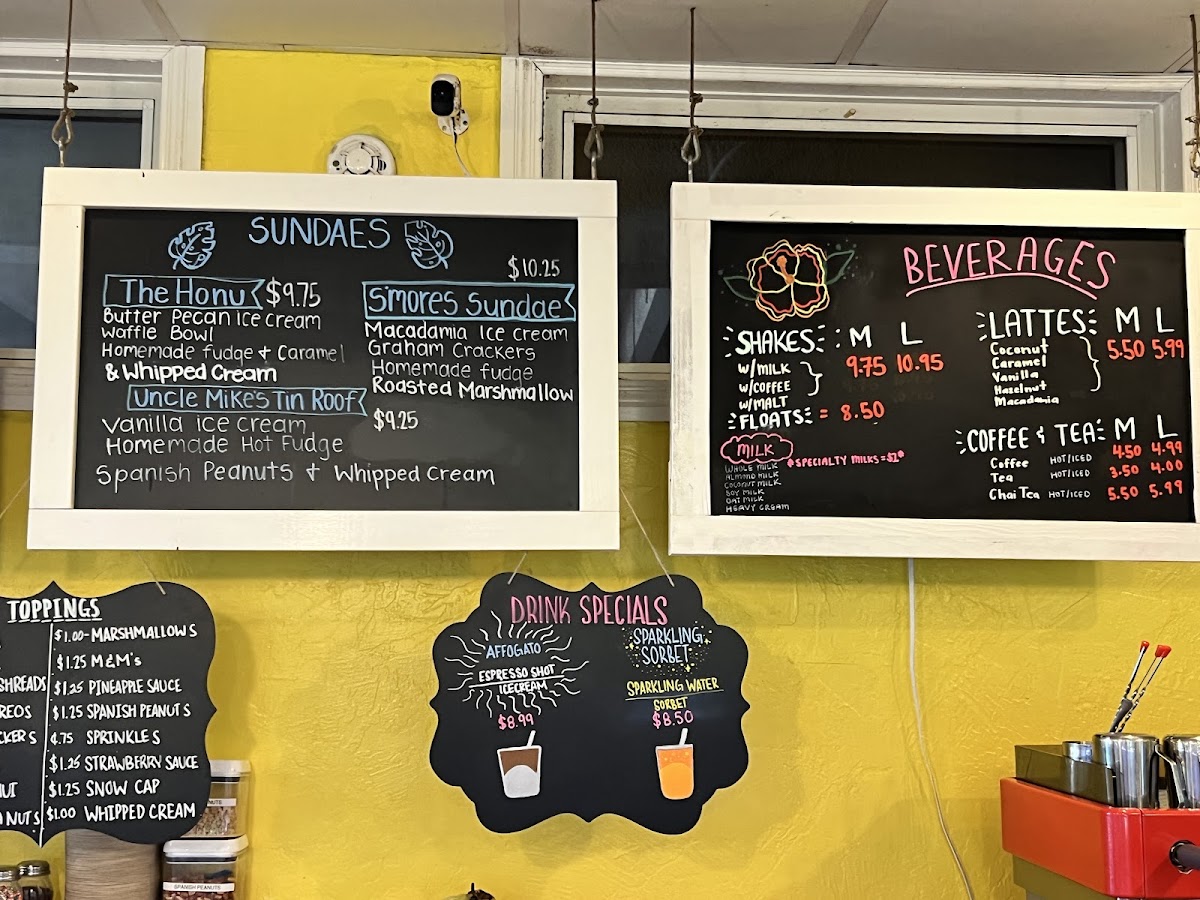 SUNDAES
The Honu $9.75
Butter Pecan ice cream
Waffle Bowl
Homemade fudge & Caramel
& Whipped Cream
$10.25
S'mores Sundae
Macadamia Ice cream
Graham Crackers
Homemade fudge
Roasted Marshmallow
Uncle Mike's Tin Roof
$9.25
Vanilla ice cream
Homemade Hot Fudge
Spanish Peanuts & Whipped Cream
BEVERAGES
SHAKES M L
W/MILK
W/COFFEE
W/MALT
9.75 10.95
FLOATS = 8.50
MILK
*SPECIALTY MILKS = $1*
WHOLE MILK
ALMOND MILK
COCONUT MILK
SOY MILK
OAT MILK
HEAVY CREAM
LATTES M L
Coconut
Caramel
Vanilla
Hazelnut
Macadamia
5.50 5.99
COFFEE & TEA M L
Coffee HOT/ICED 4.50 4.99
Tea HOT/ICED 3.50 4.00
Chai Tea HOT/ICED 5.50 5.99
TOPPINGS
$1.00-MARSHMALLOWS
$1.25 M&M's
SHREDS $1.25 PINEAPPLE SAUCE
REOS $1.25 SPANISH PEANUTS
CKERS $.75 SPRINKLES
$1.25 STRAWBERRY SAUCE
NUT $1.25 SNOW CAP
NUTS $1.00 WHIPPED CREAM
DRINK SPECIALS
AFFOGATO
ESPRESSO SHOT
ICECREAM
$8.99
SPARKLING
SORBET
SPARKLING WATER
SORBET
$8.50
SPANISH PEANUTS